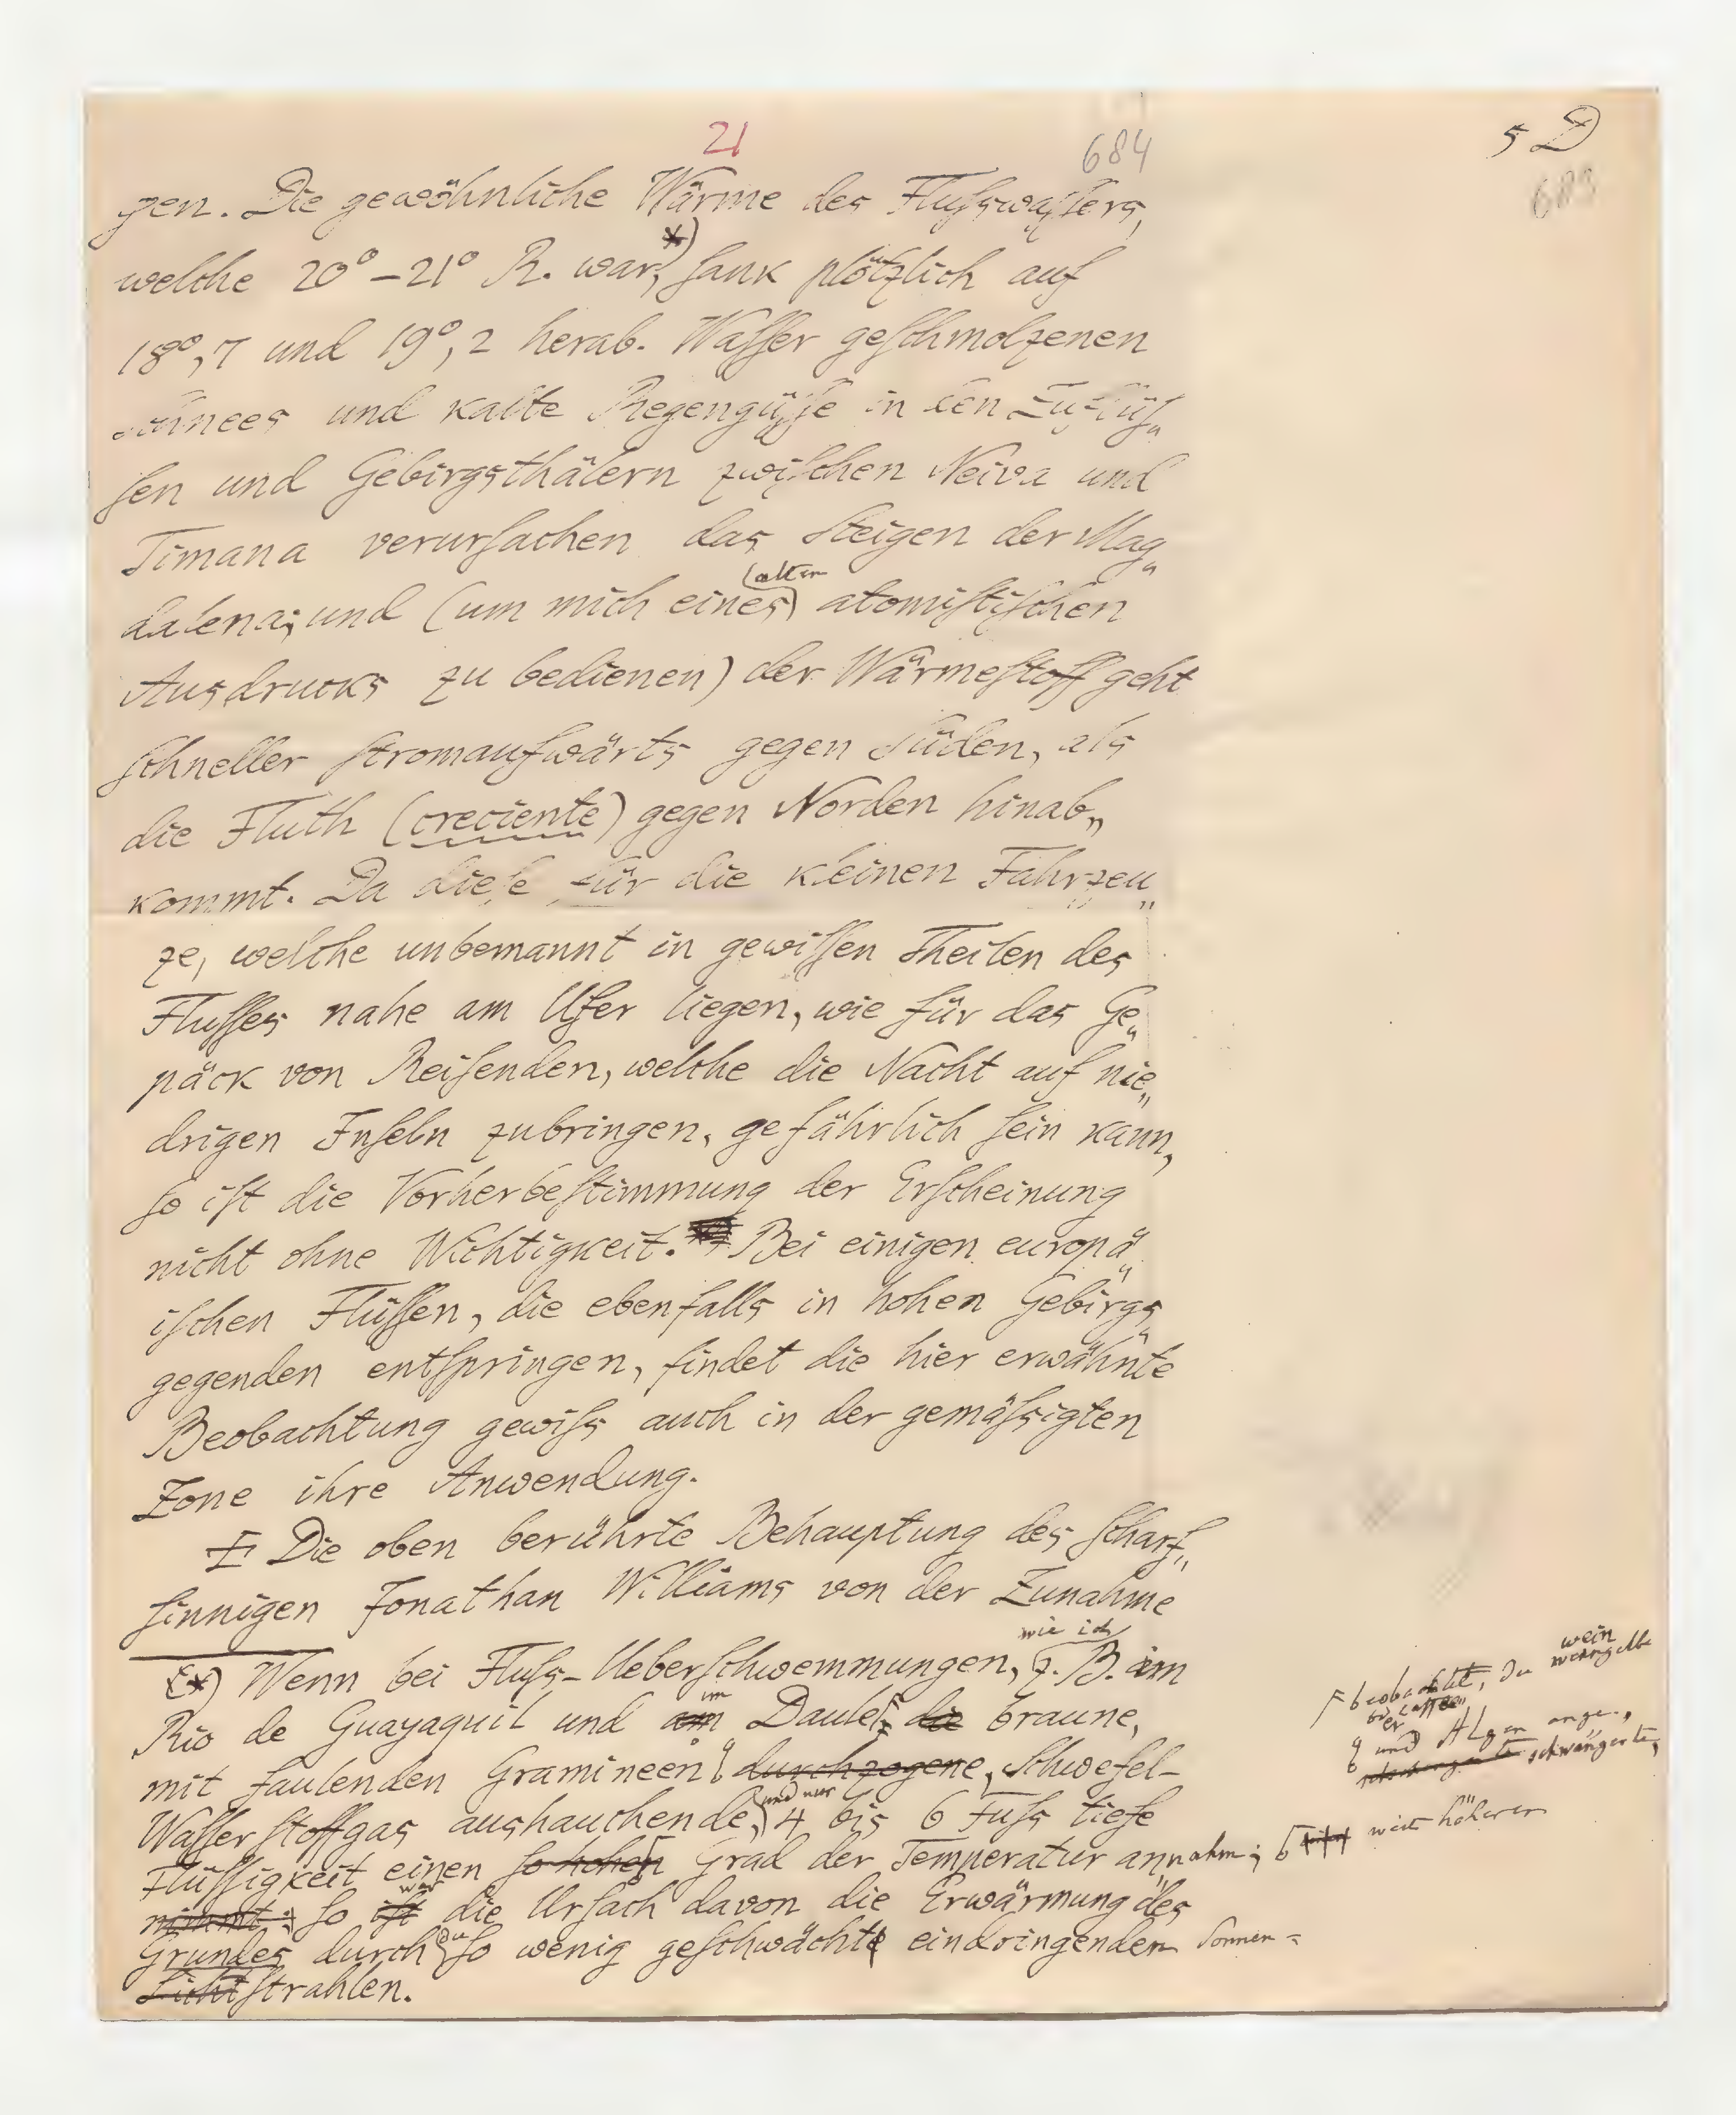 21
684
5 D
683
gen. Die gewöhnliche Wärme des Flußwaſſers,
welche 20° – 21° R. war, *) ſank plötzlich auf
18°,7 und 19°,2 herab. Waſſer geſchmolzenen
Schnees und kalte Regengüſſe in den Zuflüſ„
ſen und Gebirgsthälern zwiſchen Neiva und
Timana verurſachen das Steigen der Mag„
(alten
dalena; und (um mich eines) atomiſtiſchen
Ausdrucks zu bedienen) der Wärmeſtoff geht
ſchneller ſtromaufwärts gegen Süden, als
die Fluth (creciente) gegen Norden hinab„
kommt. Da dieſe für die kleinen Fahrzeu„
ge, welche unbemannt in gewiſſen Theilen des
Fluſſes nahe am Ufer liegen, wie für das Ge„
päck von Reiſenden, welche die Nacht auf nie„
drigen Inſeln zubringen, gefährlich ſein kann,
ſo iſt die Vorherbeſtimmung der Erſcheinung
nicht ohne Wichtigkeit. Bei einigen europä„
iſchen Flüſſen, die ebenfalls in hohen Gebirgs„
gegenden entſpringen, findet die hier erwähnte
Beobachtung gewiſs auch in der gemäſsigten
Zone ihre Anwendung.
Die oben berührte Behauptung des ſcharf„
ſinnigen Jonathan Williams von der Zunahme
wie ich
*) Wenn bei Fluſs-Ueberſchwemmungen, z. B. im
Rio de Guayaquil und am im Daule, die braune,
mit faulenden Gramineen durchzogene, Schwefel-
und nur
Waſſerſtoffgas aushauchende, 4 bis 6 Fuſs tiefe
Flüſſigkeit einen ſo hohen Grad der Temperatur annahm;
war
nimmt: ſo iſt die Urſach davon die Erwärmung des
Grundes durch zu ſo wenig geſchwächt eindringenden Sonnen=
Lichtſtrahlen.
beobachtet, die
wein
und Algen ange„
ſchwängerte,
weit höheren